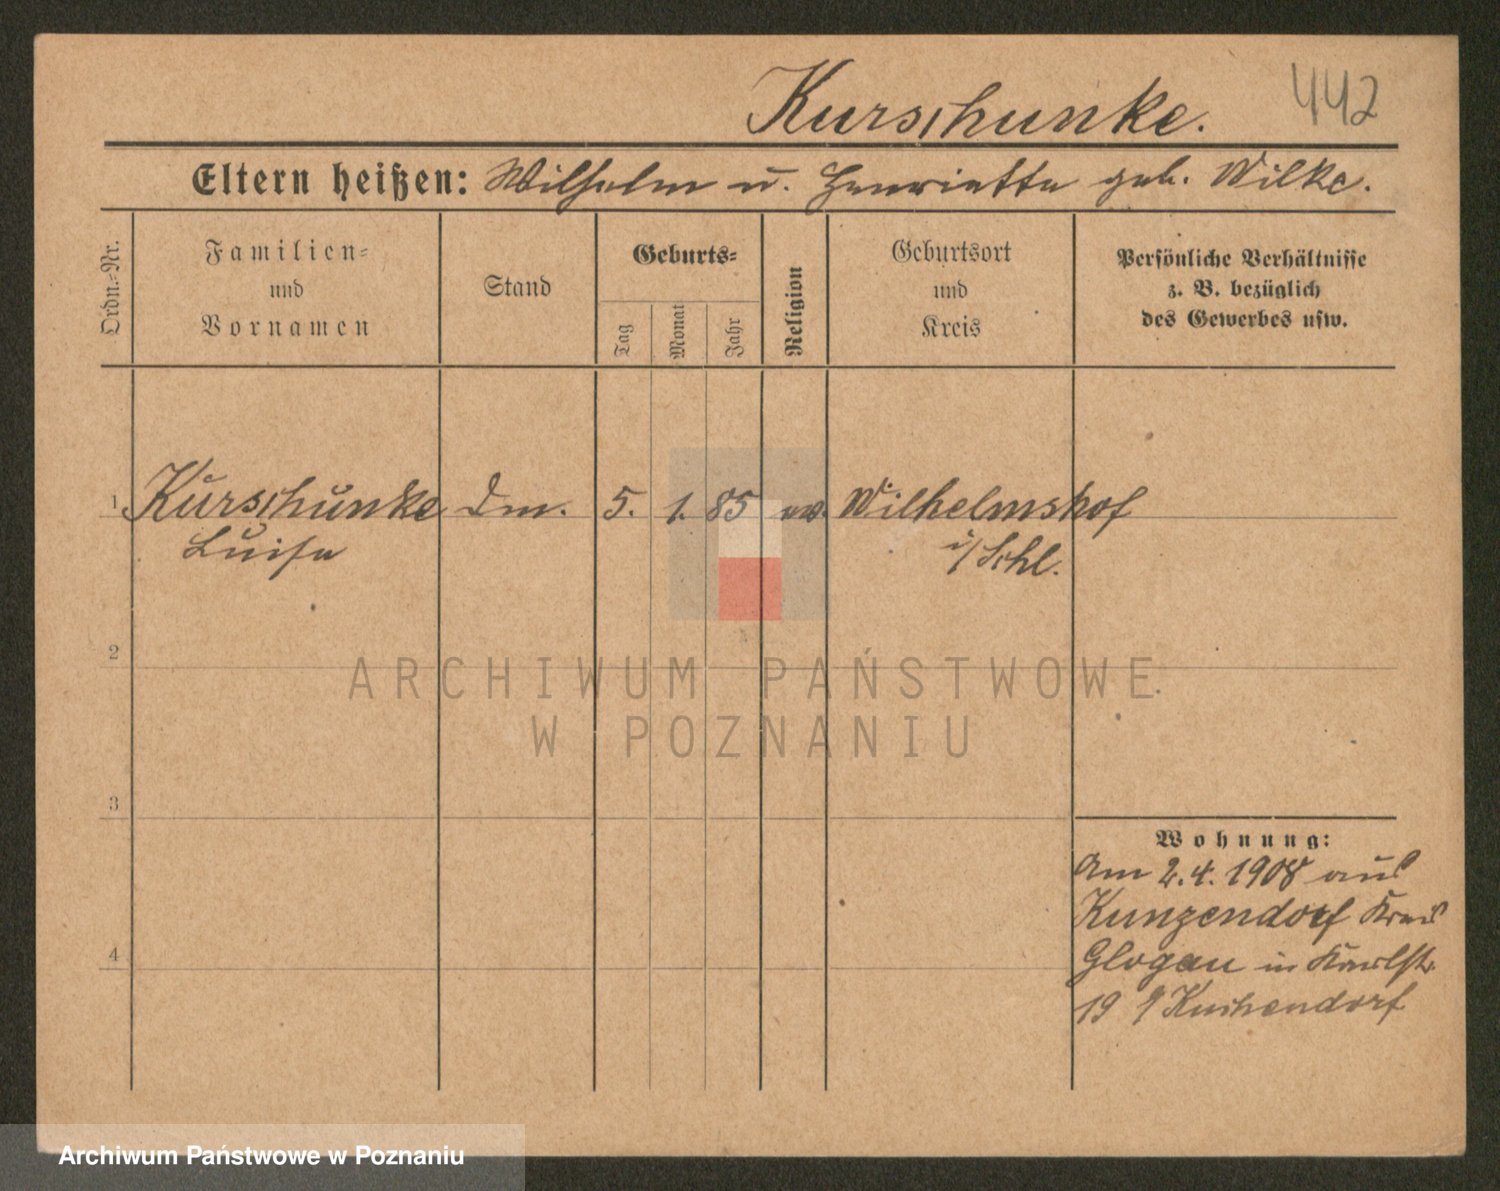 Kurschunke. 442
Eltern heißen: Wilhelm u. Henriette geb. Wilke.
Ordn.-Nr.
Familien-
und
Vornamen
Stand
Geburts-
Tag
Monat
Jahr
Religion
Geburtsort
und
Kreis
Persönliche Verhältnisse
z. B. bezüglich
des Gewerbes usw.
1 Kurschunke Dm. 5. 1. 85 ev. Wilhelmshof
Luise i/Schl.
2
ARCHIWUM PAŃSTWOWE
W POZNANIU
3
Wohnung:
Am 2.4.1908 aus
Kunzendorf Kreis
4
Glogau in Karlstr.
19 Kuchendorf
Archiwum Państwowe w Poznaniu